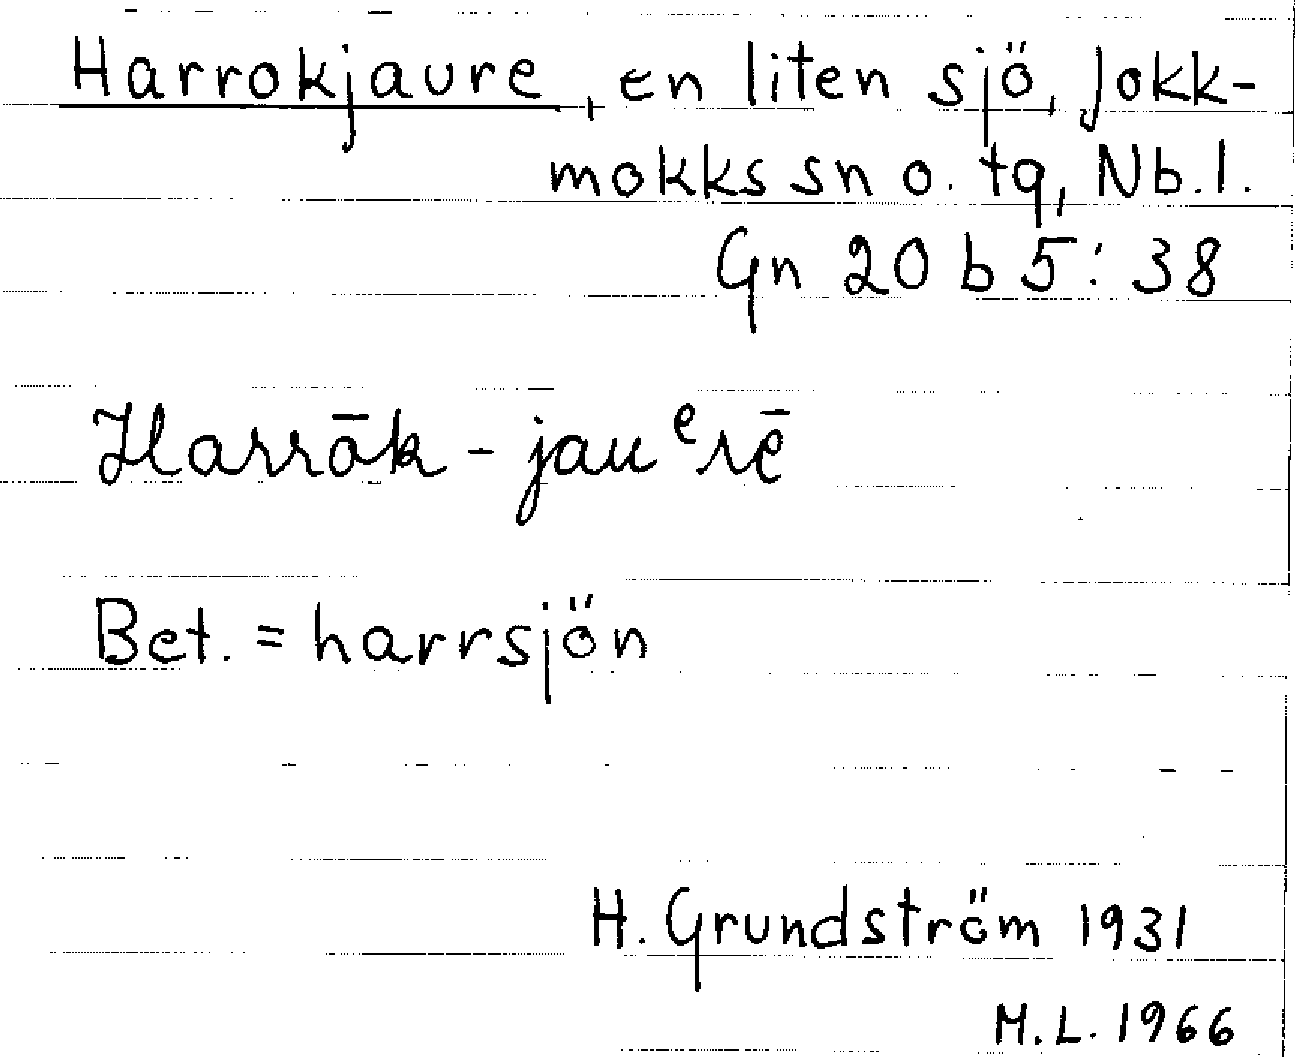 Harrokjaure, en liten sjö, Jokk-
mokks sn o. tg, Nb.l.
Gn 20 b 5:38
Harrāk-jauᵉrē
Bet. = harrsjön
H. Grundström 1931
M.L. 1966